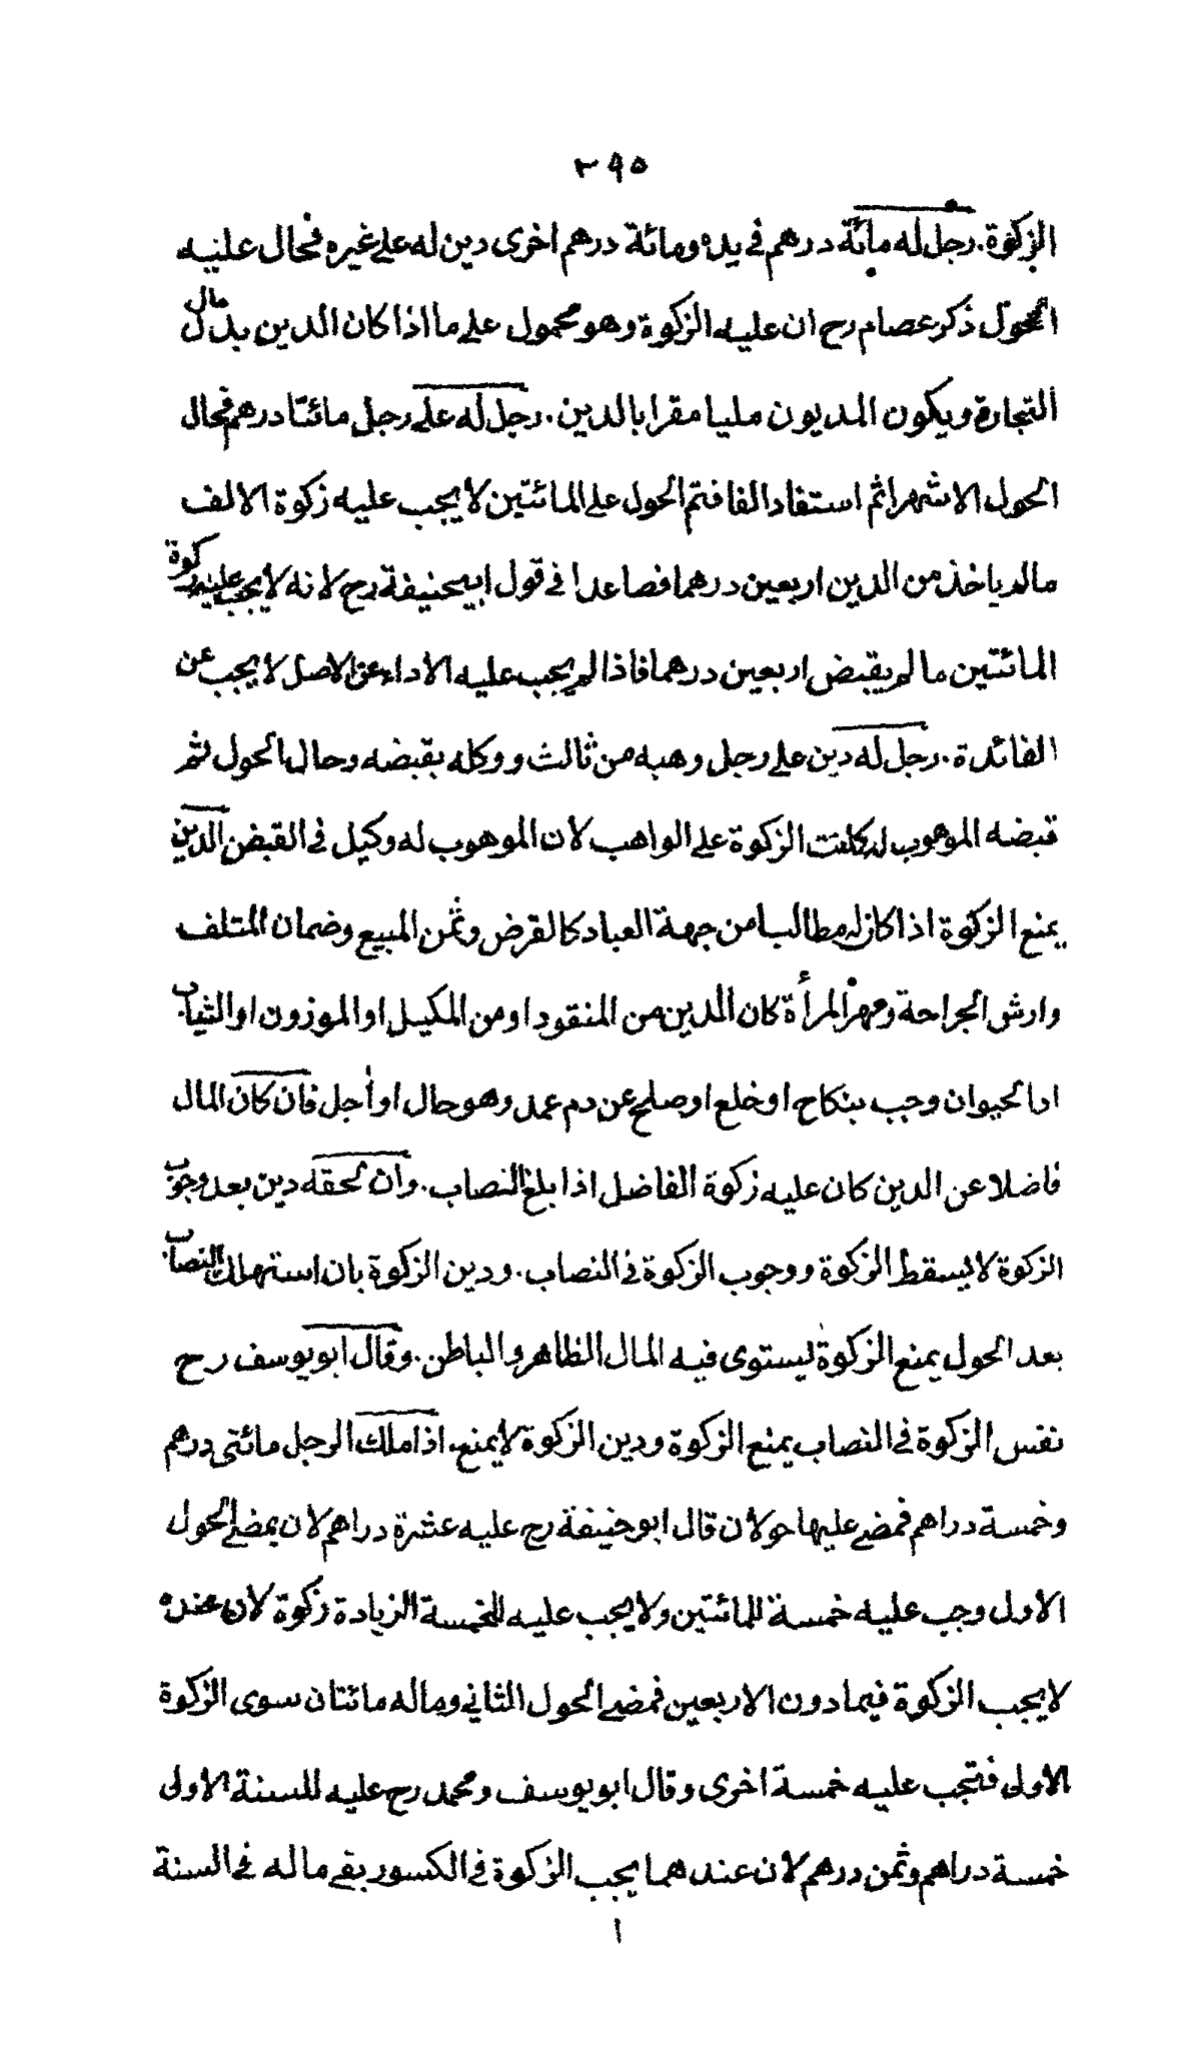 ٢٩٥
الزكوة. رجل له مائة درهم في يده ومائة درهم اخرى دين له على غيره فحال عليه
الحول ذكر عصام رح ان عليه الزكوة وهو محمول على ما اذا كان الدين بدل مال
التجارة ويكون المديون مليا مقرا بالدين. رجل له على رجل مائتا درهم فحال
الحول الا شهرا ثم استفاد الفا فتم الحول على المائتين لا يجب عليه زكوة الالف
مالم ياخذ من الدين اربعين درهما فصاعدا في قول ابيحنيفة رح لانه لا يجب عليه زكوة
المائتين ما لم يقبض اربعين درهما فاذا لم يجب عليه الاداء عن الاصل لا يجب عن
الفائدة. رجل له دين على رجل وهبه من ثالث ووكله بقبضه وحال الحول ثم
قبضه الموهوب له كانت الزكوة على الواهب لان الموهوب له وكيل في القبض الدين
يمنع الزكوة اذا كان له مطالبا من جهة العباد كالقرض وثمن المبيع وضمان المتلف
وارش الجراحة ومهر المرأة كان الدين من المنقود او من المكيل او الموزون او الثياب
او الحيوان وجب بنكاح او خلع او صلح عن دم عمد وهو حال او أجل فان كان المال
فاضلا عن الدين كان عليه زكوة الفاضل اذا بلغ النصاب. وان لحقه دين بعد وجوب
الزكوة لا يسقط الزكوة ووجوب الزكوة في النصاب. ودين الزكوة بان استهلك النصاب
بعد الحول يمنع الزكوة يستوى فيه المال الظاهر والباطن. وقال ابو يوسف رح
نفس الزكوة في النصاب يمنع الزكوة ودين الزكوة لا يمنع. اذا ملك الرجل مائتى درهم
وخمسة دراهم فمضى عليها حولان قال ابو حنيفة رح عليه عشرة دراهم لان بمضى الحول
الاول وجب عليه خمسة للمائتين ولا يجب عليه للخمسة الزيادة زكوة لان عنده
لا يجب الزكوة فيما دون الاربعين فمضى الحول الثاني وماله مائتان سوى الزكوة
الاولى فتجب عليه خمسة اخرى وقال ابو يوسف ومحمد رح عليه للسنة الاولى
خمسة دراهم وثمن درهم لان عندهما يجب الزكوة في الكسور بقى ماله في السنة
ا